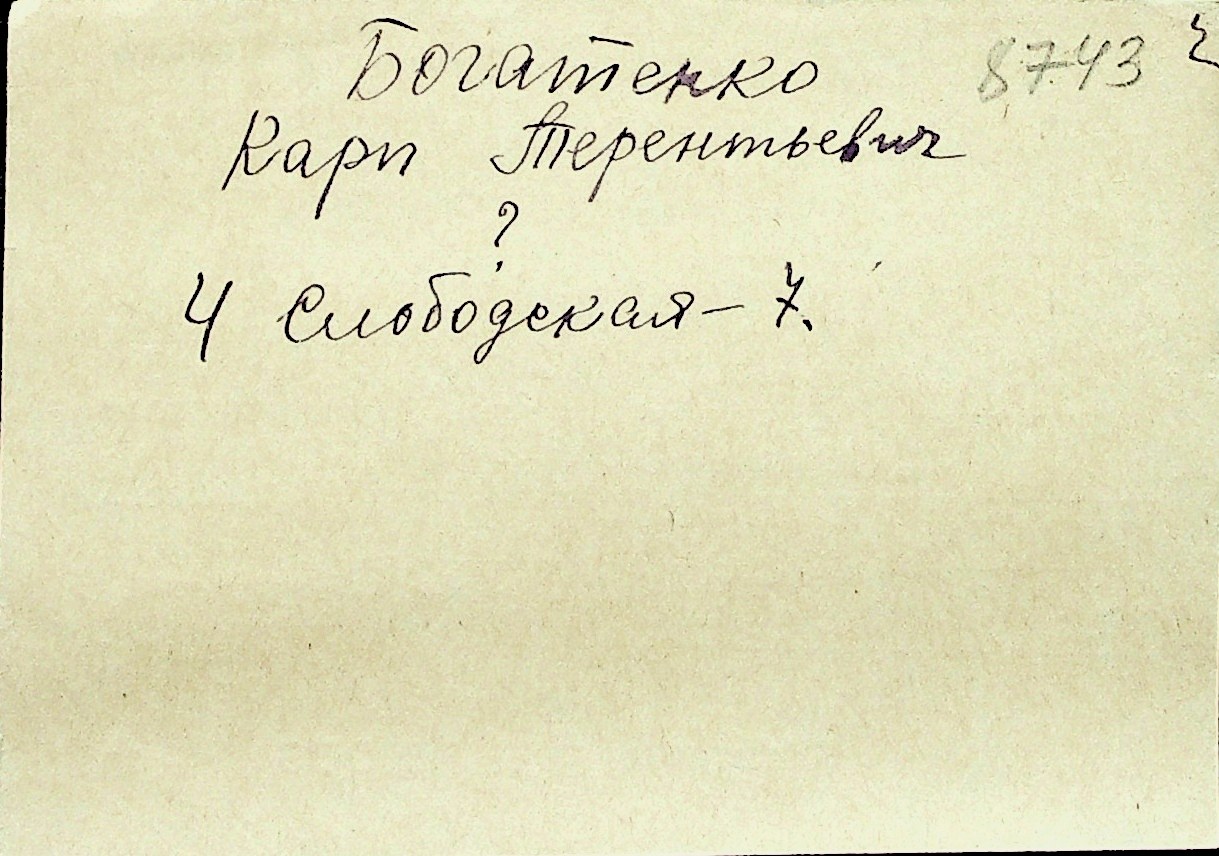 Богатенко 8743
Карп Терентьевич
?
4 Слободская - 7.